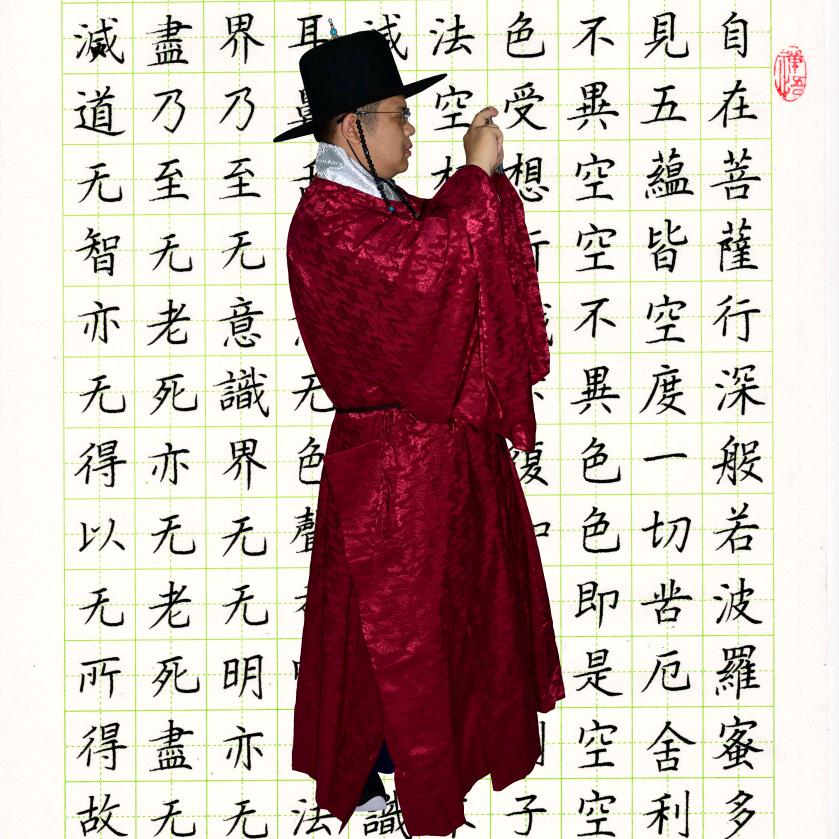 自在菩薩行深般若波羅蜜多
見五蘊皆空度一切苦厄舍利
不異空空不異色色即是空空
色受想行復子
法空
滅識
耳无色聲法
界乃至无意識界无无明亦无
盡乃至无老死亦无老死盡无
滅道无智亦无得以无所得故